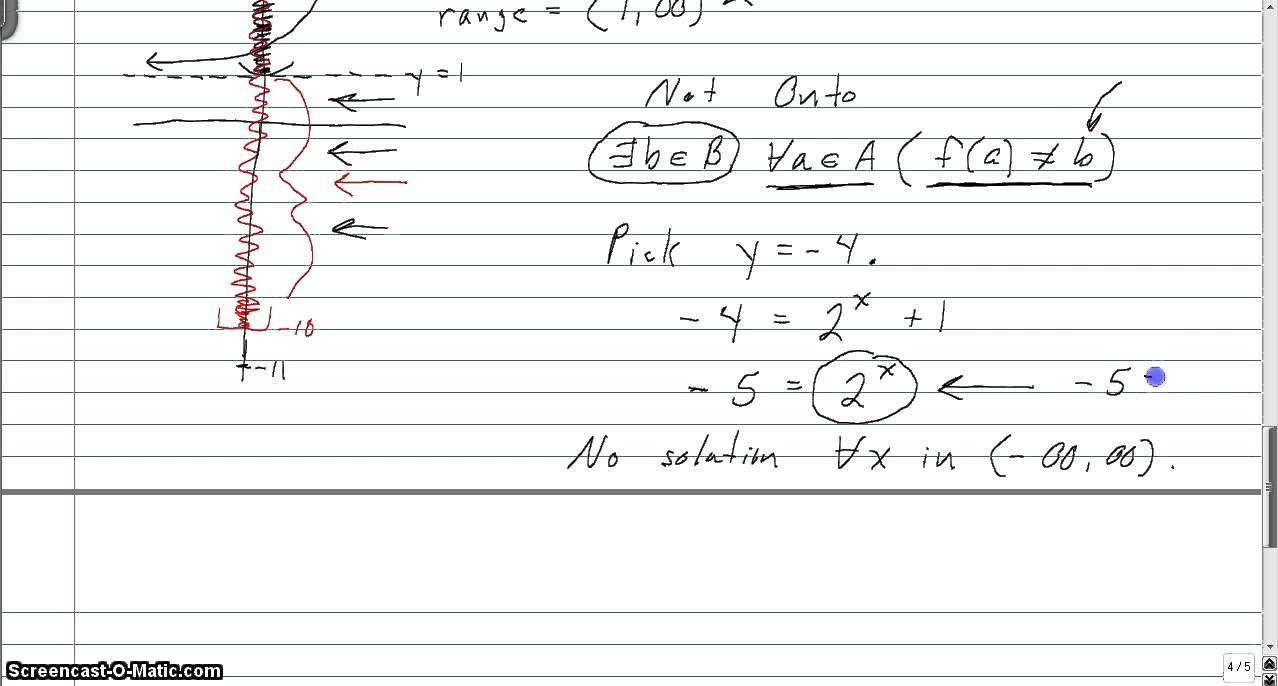 range = (1, ∞)
y = 1
Not Onto
∃b ∈ B ∀a ∈ A ( f(a) ≠ b )
Pick y = -4.
-4 = 2^x + 1
-10
-11
-5 = 2^x ← -5
No solution ∀x in (-∞, ∞).
Screencast-O-Matic.com
4 / 5